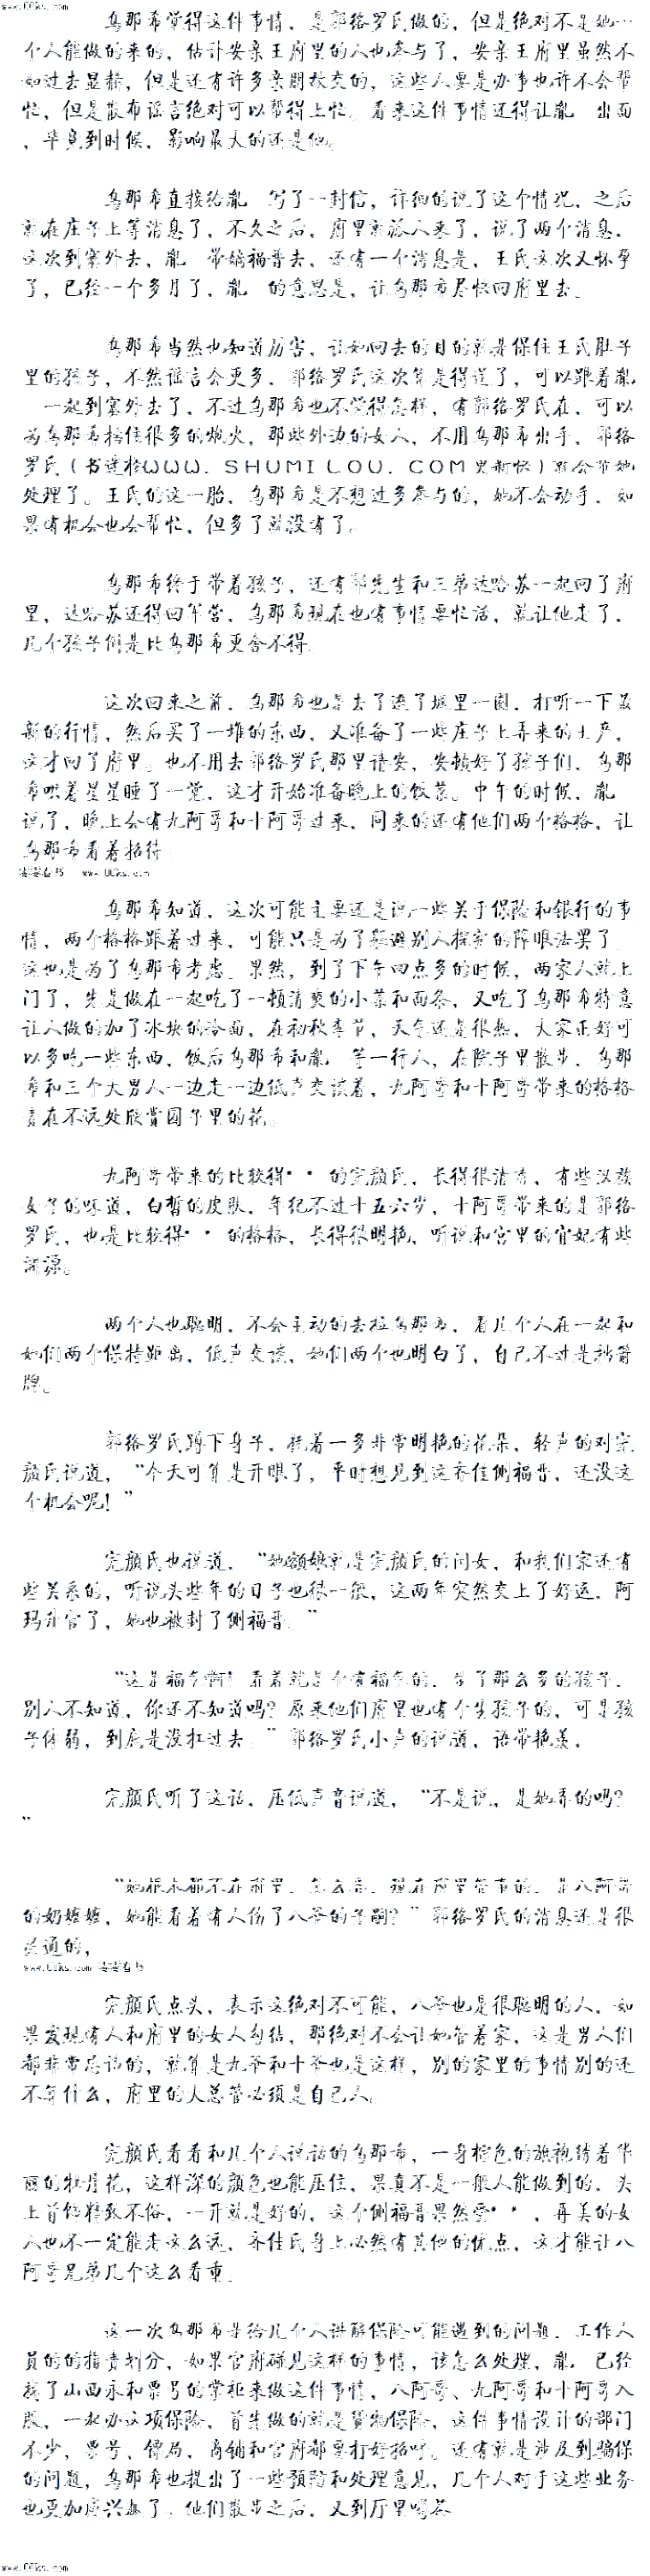 www.06ks.com
乌那希觉得这件事情，是郭络罗氏做的，但是绝对不是她一
个人能做的来的，估计安亲王府里的人也参与了，安亲王府里虽然不
如过去显赫，但是还有许多亲朋故交的，这些人要是办事也许不会帮
忙，但是散布谣言绝对可以帮得上忙。看来这件事情还得让胤 出面
，毕竟到时候，影响最大的还是他。
乌那希直接给胤 写了一封信，详细的说了这个情况，之后
就在庄子上等消息了，不久之后，府里就派人来了，说了两个消息，
这次到塞外去，胤 带嫡福晋去，还有一个消息是，王氏这次又怀孕
了，已经一个多月了，胤 的意思是，让乌那希尽快回府里去。
乌那希当然也知道厉害，让她回去的目的就是保住王氏肚子
里的孩子，不然谣言会更多，郭络罗氏这次算是得逞了，可以跟着胤
一起到塞外去了，不过乌那希也不觉得怎样，有郭络罗氏在，可以
为乌那希挡住很多的炮火，那些外边的女人，不用乌那希出手，郭络
罗氏（书迷楼WWW．SHUMILOU．COM更新快）就会帮她
处理了。王氏的这一胎，乌那希是不想过多参与的，她不会动手，如
果有机会也会帮忙，但多了就没有了。
乌那希终于带着孩子，还有郭先生和三弟达哈苏一起回了府
里，达哈苏还得回军营，乌那希现在也有事情要忙活，就让他走了，
几个孩子倒是比乌那希更舍不得。
这次回来之前，乌那希也是去了逛了城里一圈，打听一下最
新的行情，然后买了一堆的东西，又准备了一些庄子上弄来的土产，
这才回了府里。也不用去郭络罗氏那里请安，安顿好了孩子们，乌那
希哄着星星睡了一觉，这才开始准备晚上的饭菜。中午的时候，胤
说了，晚上会有九阿哥和十阿哥过来，同来的还有他们两个格格，让
乌那希看着招待。
www.06ks.com
乌那希知道，这次可能主要还是说一些关于保险和银行的事
情，两个格格跟着过来，可能只是为了躲避别人探查的障眼法罢了，
这也是为了乌那希考虑。果然，到了下午四点多的时候，两家人就上
门了，先是做在一起吃了一顿清爽的小菜和面条，又吃了乌那希特意
让人做的加了冰块的冷面，在初秋季节，天气还是很热，大家正好可
以多吃一些东西，饭后乌那希和胤 等一行人，在院子里散步，乌那
希和三个大男人一边走一边低声交谈着，九阿哥和十阿哥带来的格格
责在不远处欣赏园子里的花。
九阿哥带来的比较得··的完颜氏，长得很清秀，有些汉族
女子的味道，白皙的皮肤，年纪不过十五六岁，十阿哥带来的是郭络
罗氏，也是比较得··的格格，长得很明艳，听说和宫里的宜妃有些
渊源。
两个人也聪明，不会主动的去拉乌那希，看几个人在一起和
她们两个保持距离，低声交谈，她们两个也明白了，自己不过是挡箭
牌。
郭络罗氏蹲下身子，抚着一多非常明艳的花朵，轻声的对完
颜氏说道，“今天可算是开眼了，平时想见到这齐佳侧福晋，还没这
个机会呢！”
完颜氏也说道，“她额娘就是完颜氏的闺女，和我们家还有
些关系的，听说头些年的日子也很一般，这两年突然交上了好运，阿
玛升官了，她也被封了侧福晋。”
“这是福气啊！看着就是个有福气的，生了那么多的孩子，
别人不知道，你还不知道吗？原来他们府里也有个生孩子的，可是孩
子体弱，到底是没扛过去。”郭络罗氏小声的说道，语带艳羡。
完颜氏听了这话，压低声音说道，“不是说，是她弄的吗？
”
“她根本都不在府里，怎么弄，现在府里管事的，是八阿哥
的奶嬷嬷，她能看着有人伤了八爷的子嗣？”郭络罗氏的消息还是很
灵通的，
www.06ks.com
完颜氏点头，表示这绝对不可能，八爷也是很聪明的人，如
果发现有人和府里的女人勾结，那绝对不会让她管着家，这是男人们
都非常忌讳的，就算是九爷和十爷也是这样，别的家里的事情别的还
不算什么，府里的大总管必须是自己人。
完颜氏看看和几个人说话的乌那希，一身棕色的旗袍绣着华
丽的牡丹花，这样深的颜色也能压住，果真不是一般人能做到的，头
上首饰精致不俗，一看就是好的，这个侧福晋果然受··，再美的女
人也不一定能走这么远，齐佳氏身上必然有其他的优点，这才能让八
阿哥兄弟几个这么看重。
这一次乌那希是给几个人讲解保险可能遇到的问题，工作人
员的的指责划分，如果官府碰见这样的事情，该怎么处理，胤 已经
找了山西永和票号的掌柜来做这件事情，八阿哥、九阿哥和十阿哥入
股，一起办这项保险，首先做的就是货物保险，这件事情设计的部门
不少，票号、镖局、商铺和官府都要打好招呼。还有就是涉及到骗保
的问题，乌那希也提出了一些预防和处理意见，几个人对于这些业务
也更加感兴趣了，他们散步之后，又到厅里喝茶
www.06ks.com